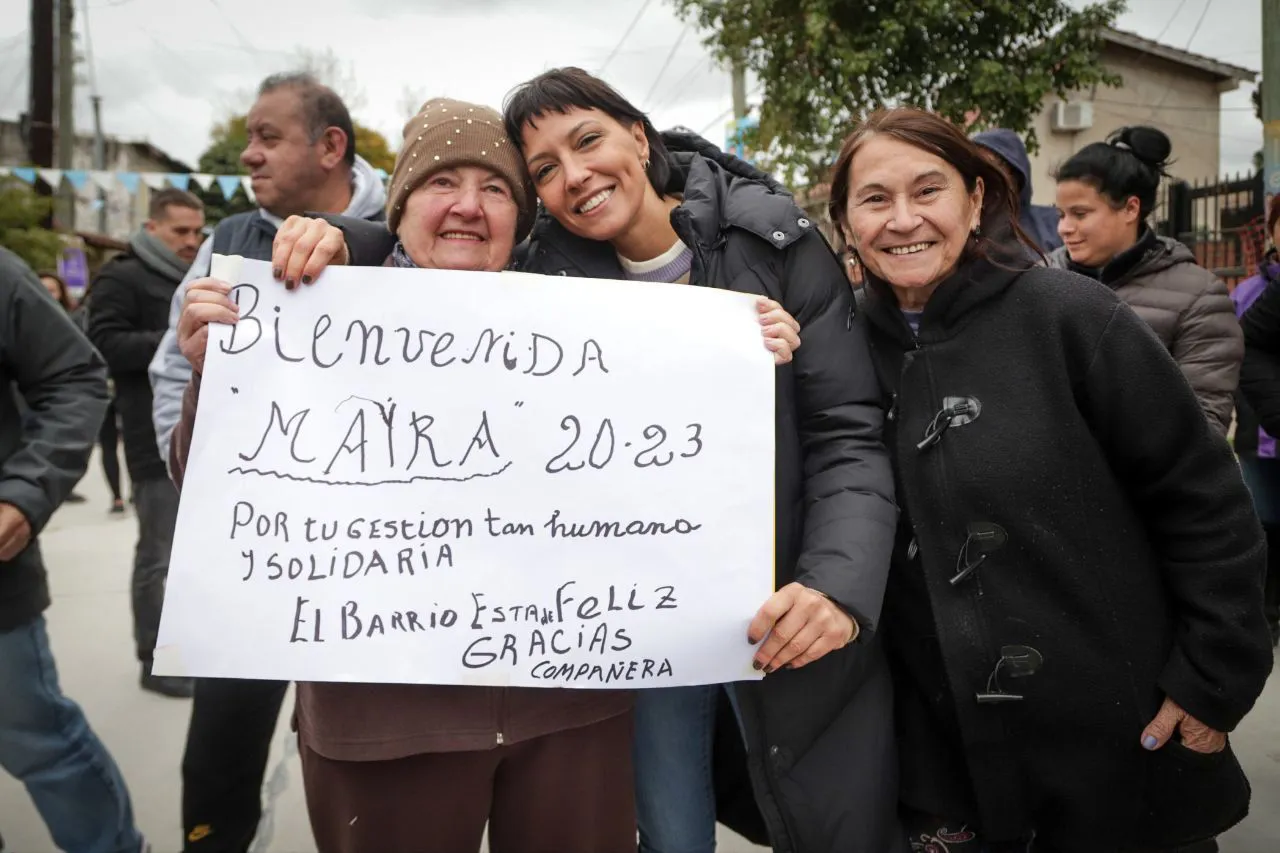 BienveniDA
"MAYRA" 20-23
POR tu GESTION tan humana
Y SOLIDARIA
EL BARRIO ESTA de FeLiZ
GRACIAS
COMPAÑERA